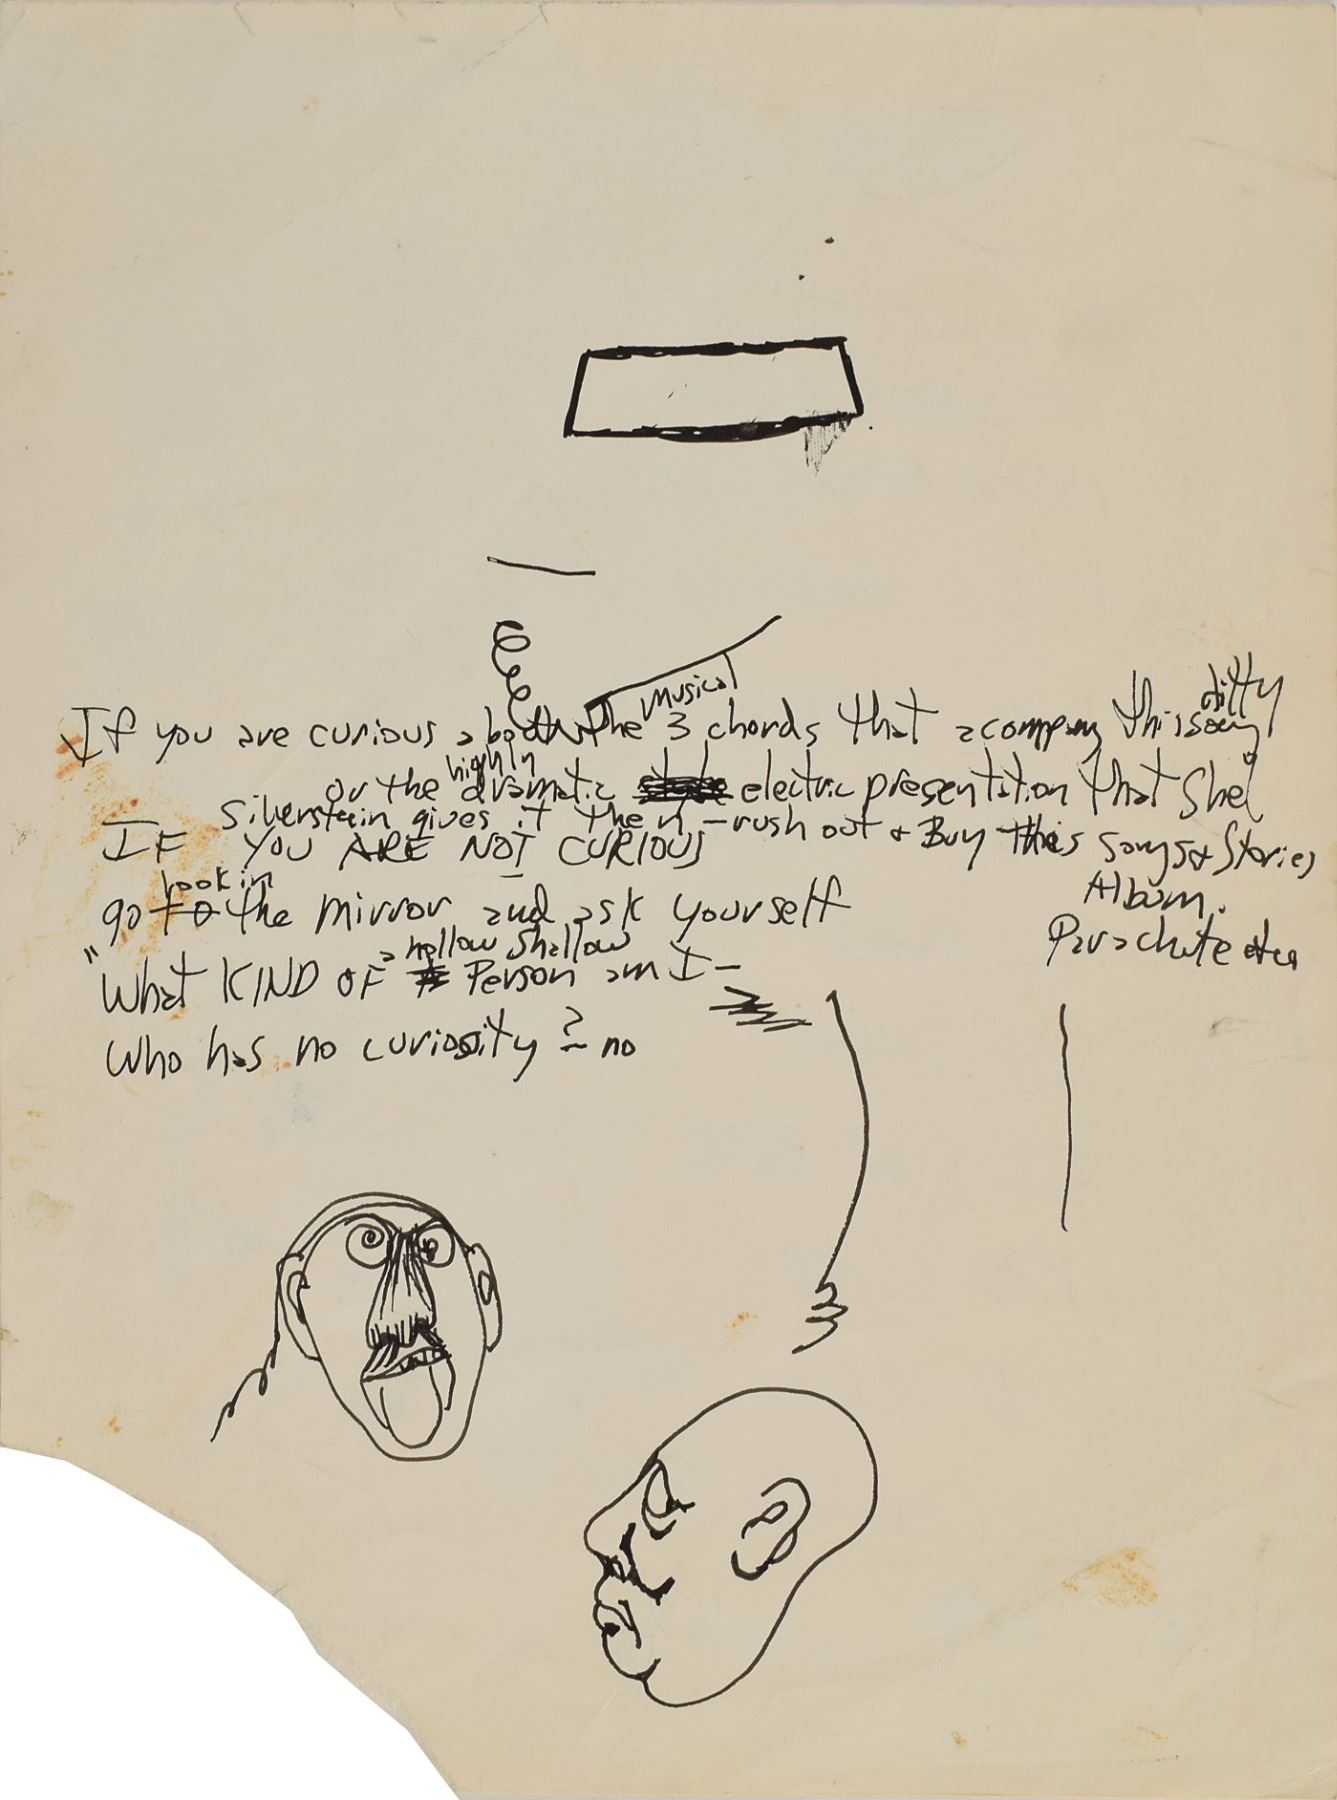 Musical ditty
If you are curious about the 3 chords that acompany this song
highly
or the dramatic electric presentation that Shel
Silverstein gives it then – rush out & Buy this songs & Stories
Album.
Parachute
IF YOU ARE NOT CURIOUS
look in
go to the mirror and ask yourself
a hollow shallow
"What KIND OF Person am I –
Who has no curiosity ? – no